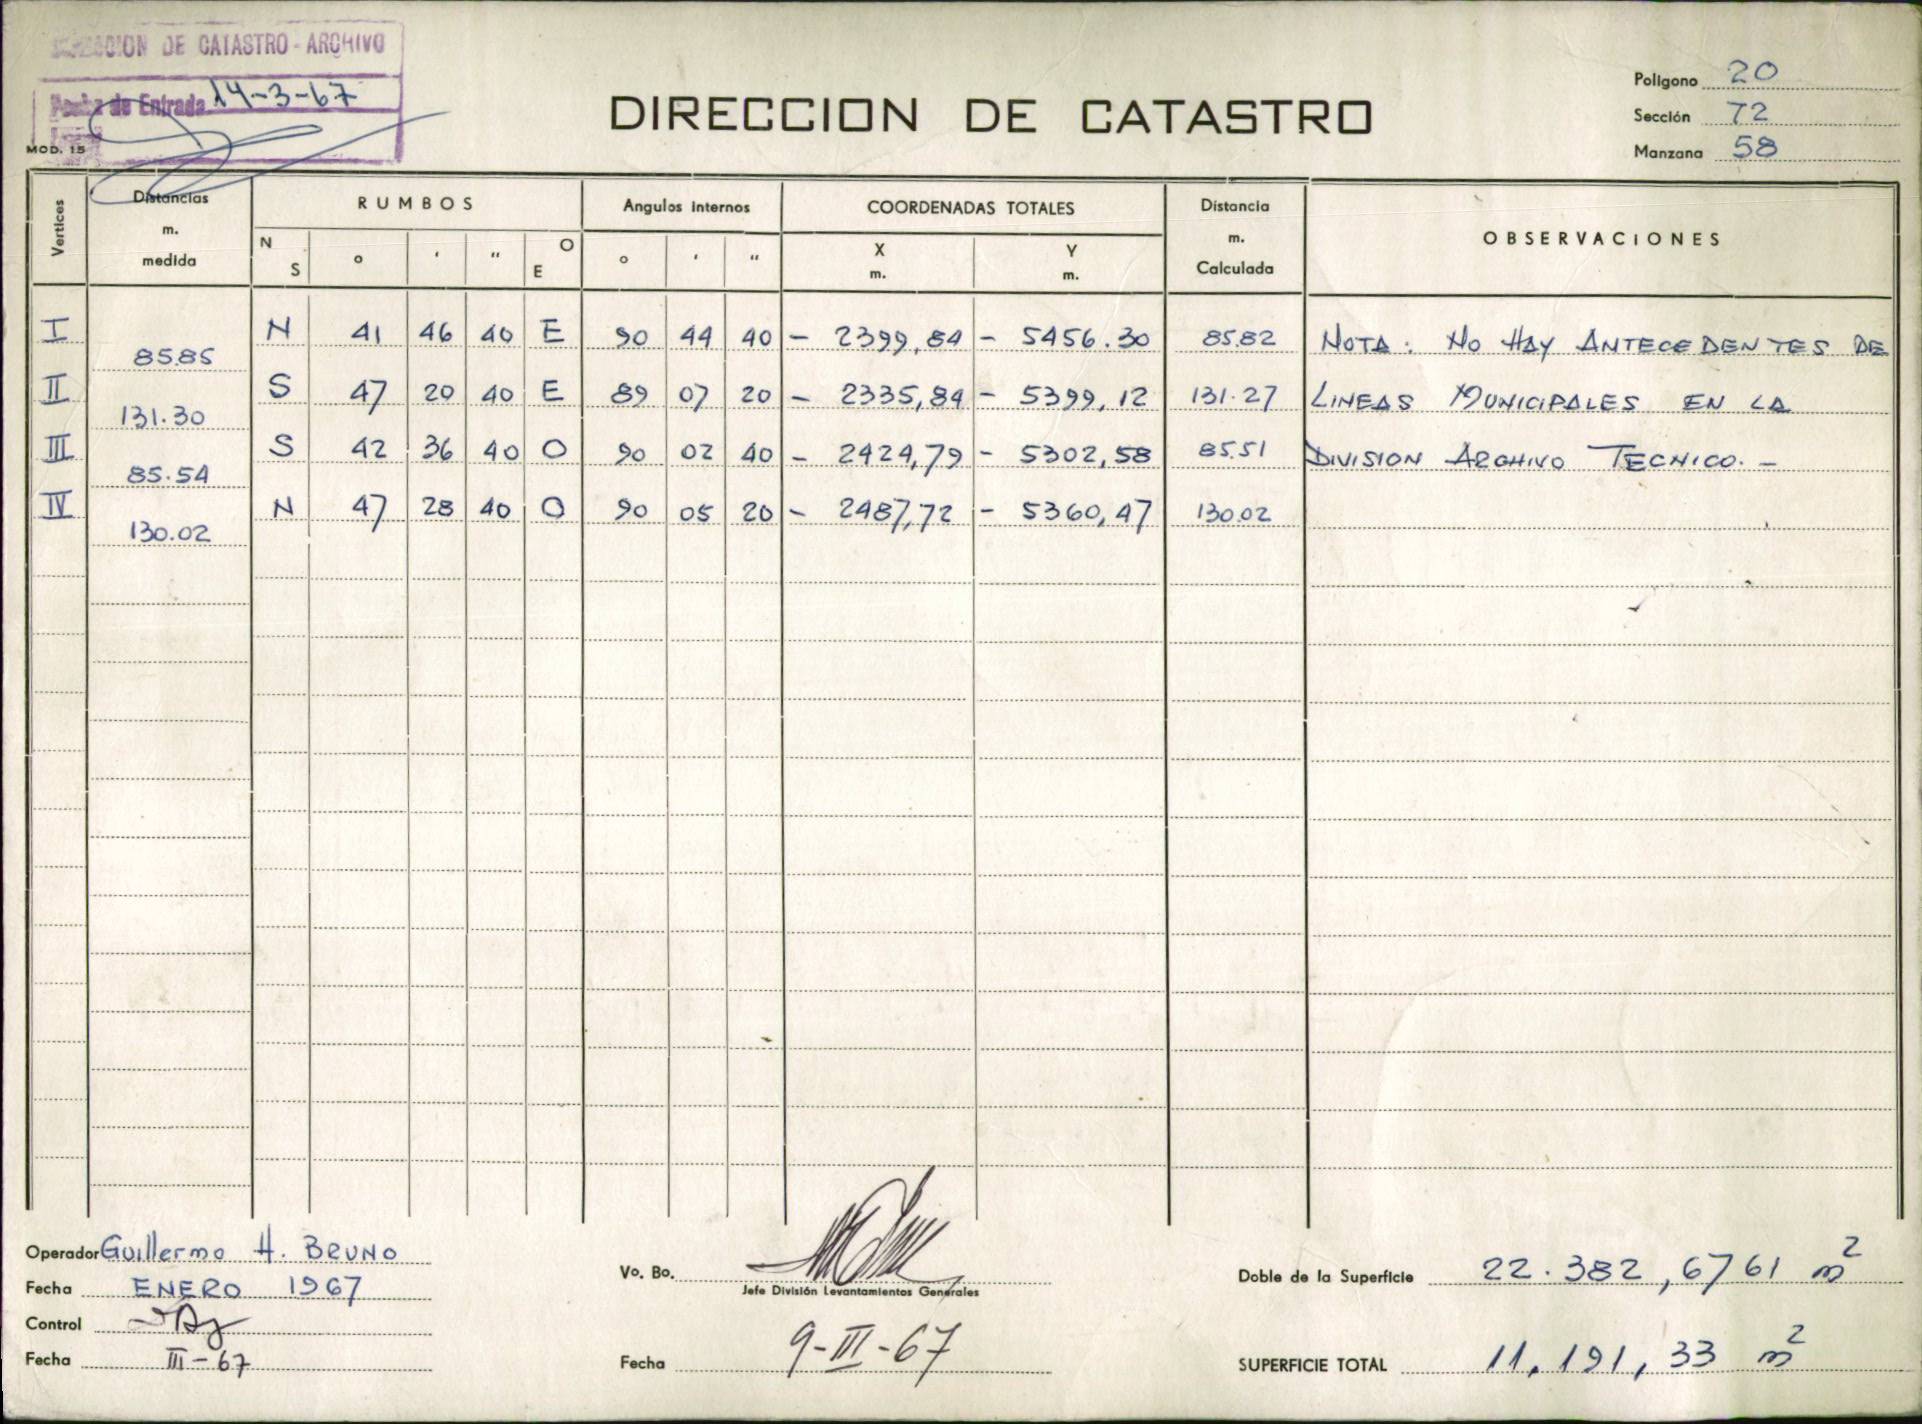 DIRECCION DE CATASTRO - ARCHIVO
Fecha de Entrada 14-3-67
MOD. 15
DIRECCION DE CATASTRO
Polígono 20
Sección 72
Manzana 58
Vertices Distancias m. medida RUMBOS Angulos internos COORDENADAS TOTALES Distancia m. Calculada OBSERVACIONES
N S o ' " O E o ' " X m. Y m.
I 85.85 N 41 46 40 E 90 44 40 - 2399,84 - 5456.30 85.82 NOTA: NO HAY ANTECEDENTES DE
II 131.30 S 47 20 40 E 89 07 20 - 2335,84 - 5399,12 131.27 LINEAS MUNICIPALES EN LA
III 85.54 S 42 36 40 O 90 02 40 - 2424,79 - 5302,58 85.51 DIVISION ARCHIVO TECNICO. -
IV 130.02 N 47 28 40 O 90 05 20 - 2487,72 - 5360,47 130.02
Operador Guillermo H. BRUNO
Fecha ENERO 1967
Control
Fecha III-67
Vo. Bo.
Jefe División Levantamientos Generales
Fecha 9-III-67
Doble de la Superficie 22.382,6761 m2
SUPERFICIE TOTAL 11.191,33 m2